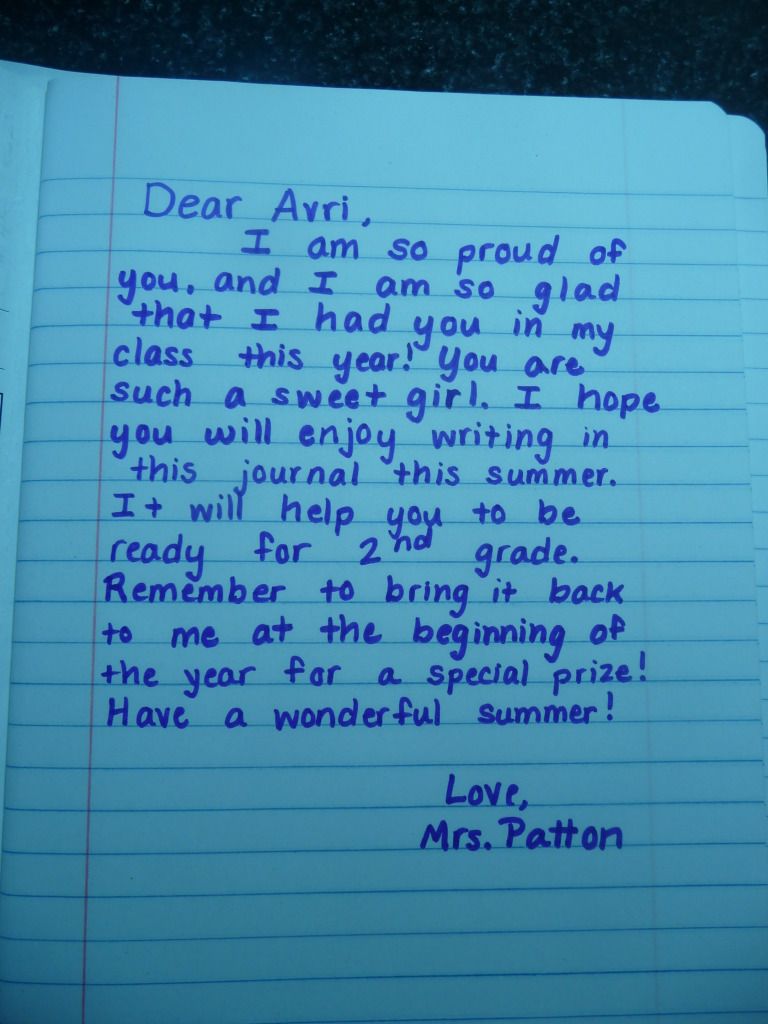 Dear Avri,
I am so proud of
you, and I am so glad
that I had you in my
class this year! You are
such a sweet girl. I hope
you will enjoy writing in
this journal this summer.
It will help you to be
ready for 2nd grade.
Remember to bring it back
to me at the beginning of
the year for a special prize!
Have a wonderful summer!
Love,
Mrs. Patton